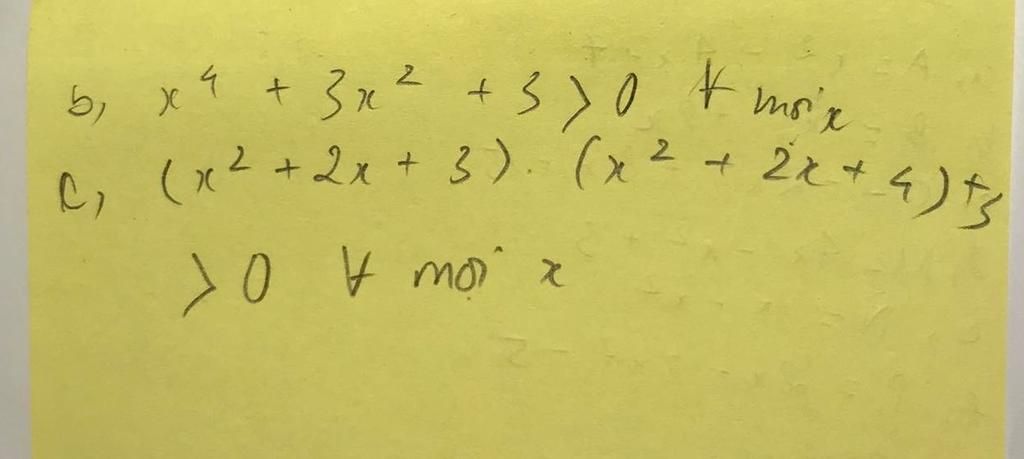 b, x⁴ + 3x² + 3 > 0 ∀ mọi x
c, (x² + 2x + 3) . (x² + 2x + 4) + 3
> 0 ∀ mọi x